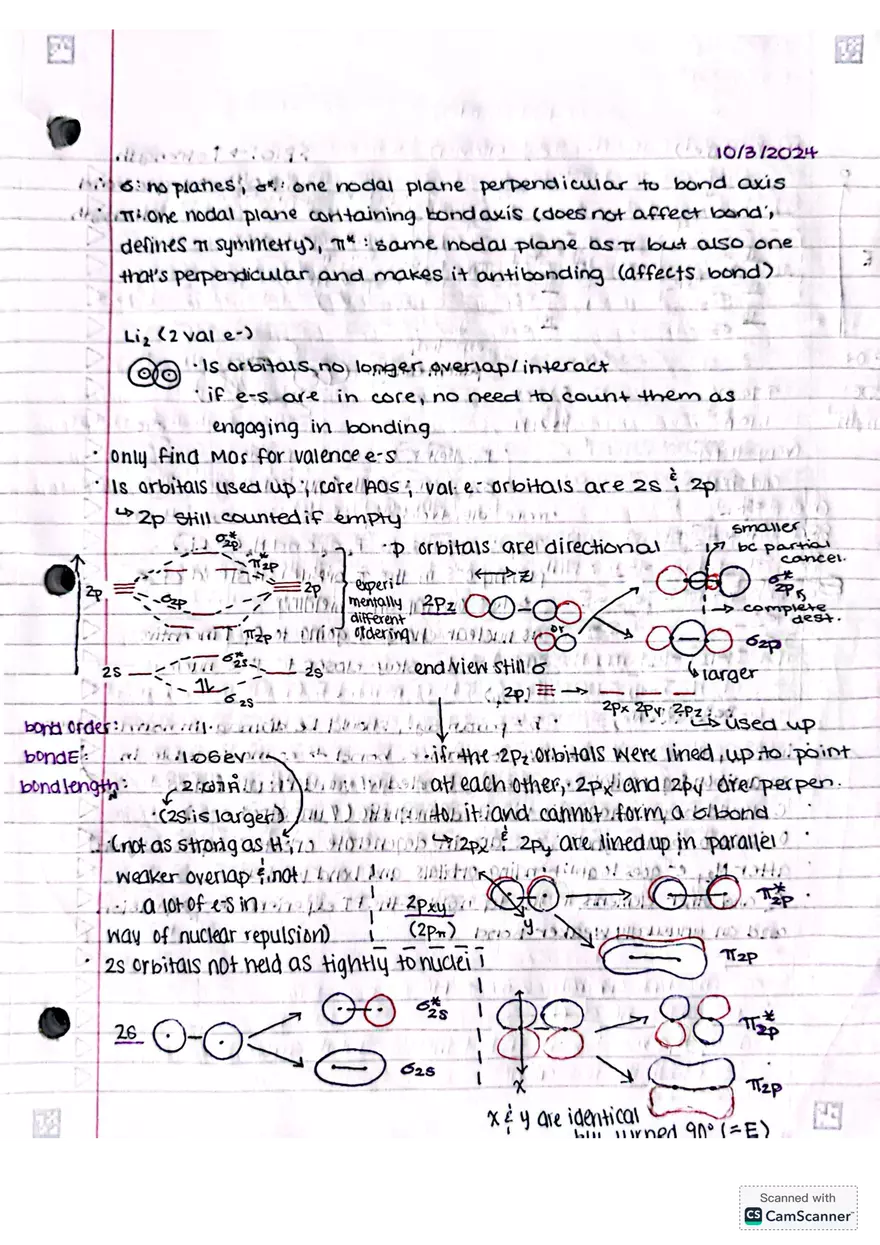 10/3/2024
σ: no planes; σ*: one nodal plane perpendicular to bond axis
π: one nodal plane containing bond axis (does not affect bond;
defines π symmetry), π*: same nodal plane as π but also one
that's perpendicular and makes it antibonding (affects bond)
Li₂ (2 val e-)
· 1s orbitals no longer overlap/interact
· if e-s are in core, no need to count them as
engaging in bonding
· only find MOs for valence e-s
· 1s orbitals used up; core AOs; val e- orbitals are 2s & 2p
↳ 2p still counted if empty
σ*2p
π*2p
2p
2p
σ2p
π2p
experi
mentally
different
ordering
2s
σ*2s
2s
1L
σ2s
· p orbitals are directional
z
2pz
or
smaller
bc partial
cancel.
σ*2p
→ complete
dest.
σ2p
↳ larger
end view still σ
2p
→
2px 2py 2pz
↳ used up
bond order:
bond E: 1.06eV
bond length:
(2s is larger)
(not as strong as H;
weaker overlap & not
a lot of e-s in
way of nuclear repulsion)
· 2s orbitals not held as tightly to nuclei
· if the 2pz orbitals were lined up to point
at each other, 2px and 2py are perpen.
to it and cannot form a σ bond
↳ 2px & 2py are lined up in parallel
2pxy
(2pπ)
y
π*2p
π2p
2s
σ*2s
σ2s
x
π*2p
π2p
x & y are identical
but turned 90° (=E)
Scanned with
CS CamScanner